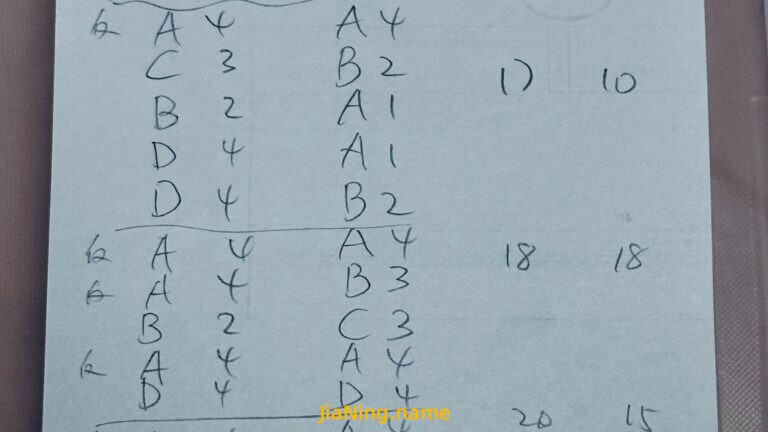 反 A 4 A 4
C 3 B 2 17 10
B 2 A 1
D 4 A 1
D 4 B 2
反 A 4 A 4 18 18
反 A 4 B 3
B 2 C 3
反 A 4 A 4
D 4 D 4
JiaNing.name
20 15